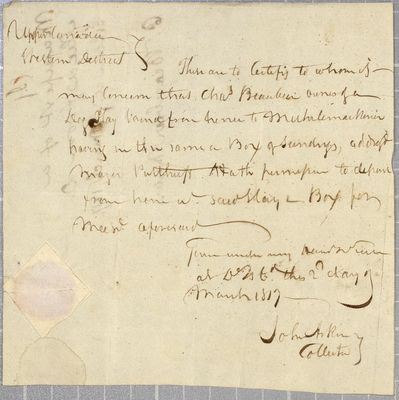 Upper Canada
Western District
These are to Certify to whom it
may Concern that Chas. Beaubien owner of a
Slay bound from hence to Michilimackinac
having in the same a Box of Sundrys, address'd
Major Puthuff Hath permission to depart
from hence wt. said Slay & Box for
aforesaid
Given under my hand &
at this 2d day of
March 1817
John Askin
Collector